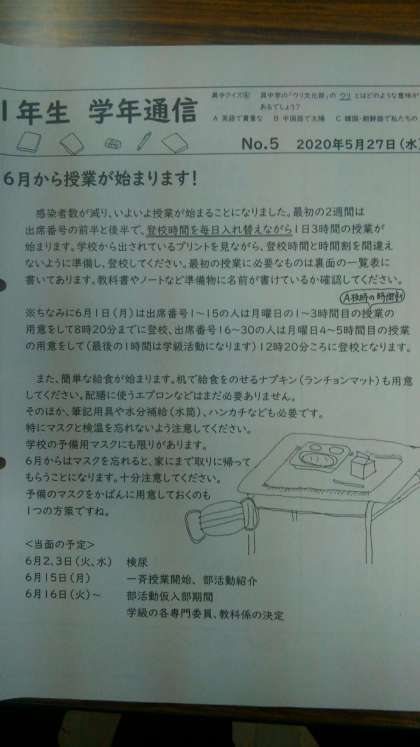 1年生 学年通信
異中クイズ④ 異中学の「ウリ文化部」の ウリ とはどのような意味が
あるでしょう?
A 英語で貴重な B 中国語で太陽 C 韓国・朝鮮語で私たちの
No.5 2020年5月27日(水
6月から授業が始まります!
感染者数が減り、いよいよ授業が始まることになりました。最初の2週間は
出席番号の前半と後半で、登校時間を毎日入れ替えながら1日3時間の授業が
始まります。学校から出されているプリントを見ながら、登校時間と時間割を間違え
ないように準備し、登校してください。最初の授業に必要なものは裏面の一覧表に
書いてあります。教科書やノートなど準備物に名前が書けているか確認してください。
A校時の時間割
※ちなみに6月1日(月)は出席番号1~15の人は月曜日の1~3時間目の授業の
用意をして8時20分までに登校、出席番号16~30の人は月曜日4~5時間目の授業
の用意をして(最後の1時間は学級活動になります)12時20分ころに登校となります。
また、簡単な給食が始まります。机で給食をのせるナプキン(ランチョンマット)も用意
してください。配膳に使うエプロンなどはまだ必要ありません。
そのほか、筆記用具や水分補給(水筒)、ハンカチなども必要です。
特にマスクと検温を忘れないよう注意してください。
学校の予備用マスクにも限りがあります。
6月からはマスクを忘れると、家にまで取りに帰って
もらうことになります。十分注意してください。
予備のマスクをかばんに用意しておくのも
1つの方策ですね。
<当面の予定>
6月2、3日(火、水) 検尿
6月15日(月) 一斉授業開始、部活動紹介
6月16日(火)~ 部活動仮入部期間
学級の各専門委員、教科係の決定